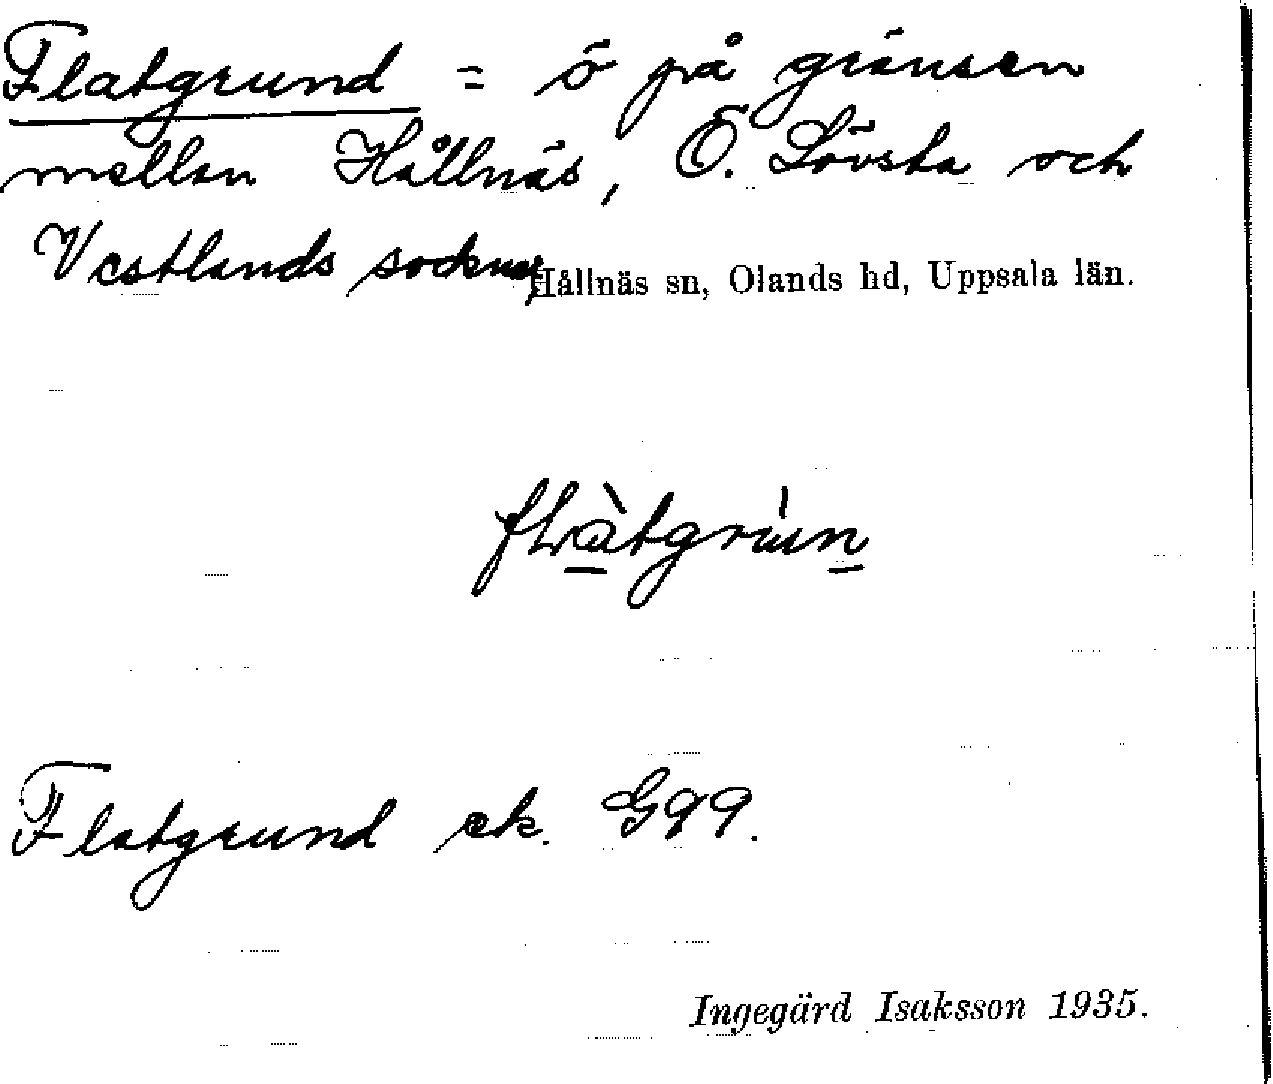 Flatgrund = ö på gränsen
mellan Hållnäs, Ö. Lövsta och
Vestlands socknar
Hållnäs sn, Olands hd, Uppsala län.
Flatgrund ek. G99.
Ingegärd Isaksson 1935.